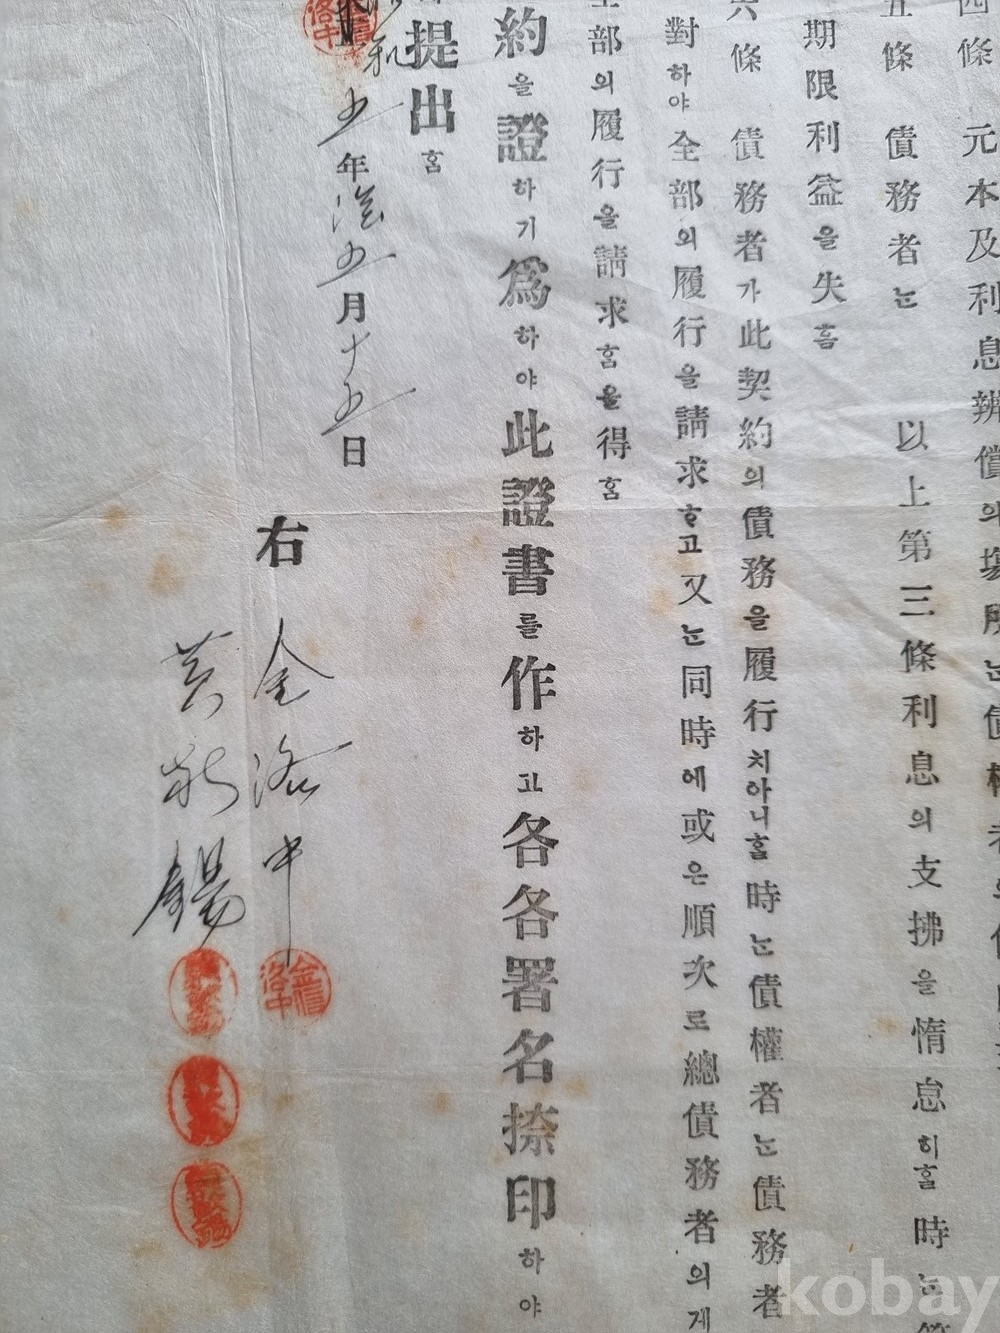 四條 元本及利息辨償의場所는債權者의
五條 債務者는 以上第三條利息의支拂을惰怠히홀時는
期限利益을失홈
六條 債務者가此契約의債務을履行치아니홈時는債權者는債務者
對하야全部의履行을請求ᄒᆞ고又는同時에或은順次로總債務者의게
部의履行을請求홈을得홈
約을證하기爲하야此證書를作하고各各署名捺印하야
提出홈
和五年 五月十五日
右 金洛中
黃 錫
金信洛中
kobay